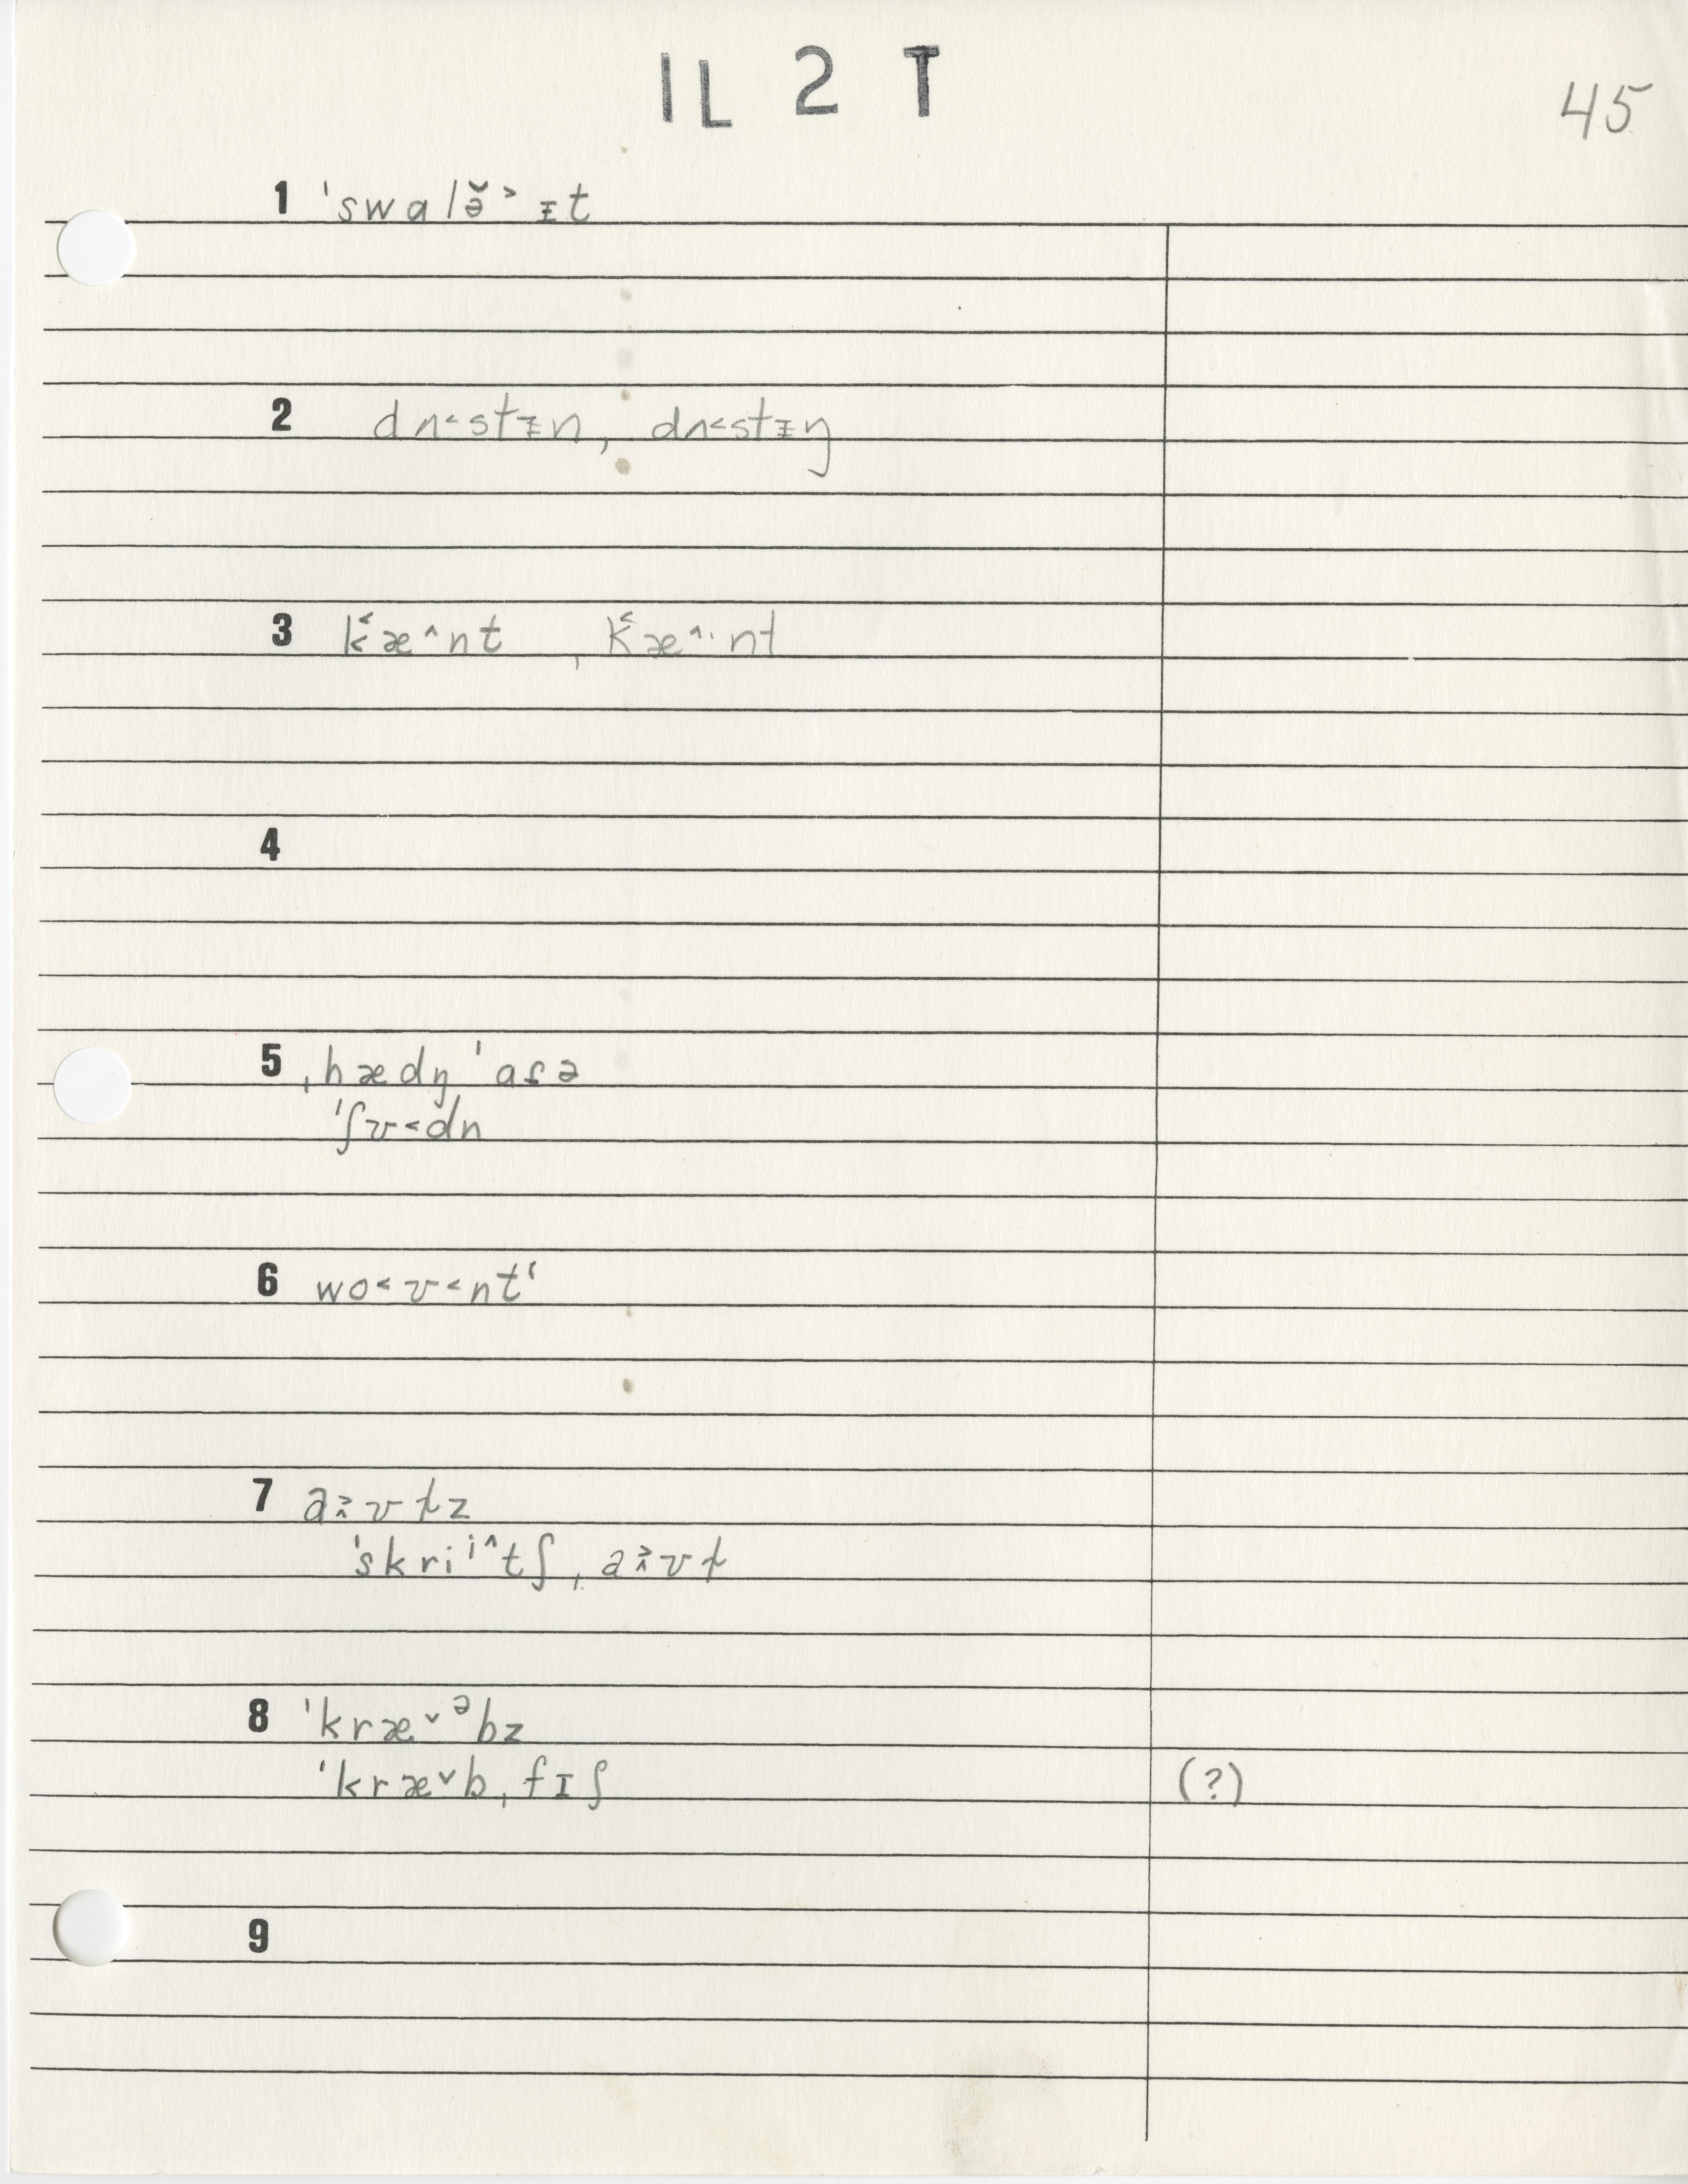 IL 2 T
45
1 ˈswalə̆˃ ᵻt
2 dʌ˂stᵻn, dʌ˂stᵻŋ
3 k˂æ˄nt , k˂æ˄·nt
4
5 ˌhædn̩ ˈaɾə
ˈʃʊ˂dn
6 wo˂ʊ˂ntʻ
7 a˃˄ʊɫz
ˈskriⁱ˄tʃˌa˃˄ʊɫ
8 ˈkræ˅ᵊbz
ˈkræ˅bˌfɪʃ (?)
9